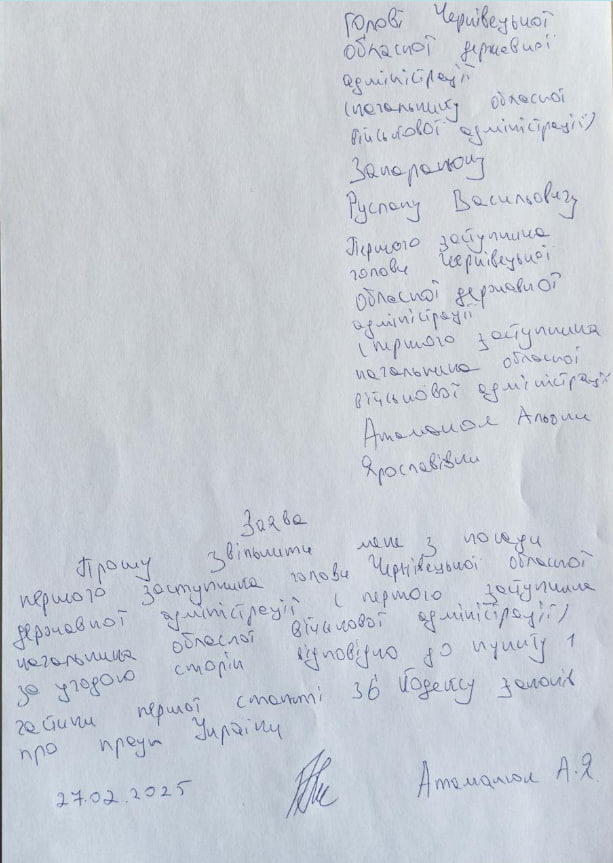 Голові Чернівецької
обласної державної
адміністрації
(начальнику обласної
військової адміністрації)
Запаранюку
Руслану Васильовичу
Першого заступника
голови Чернівецької
обласної державної
адміністрації
(першого заступника
начальника обласної
військової адміністрації
Атаманюк Альони
Ярославівни
Заява
Прошу звільнити мене з посади
першого заступника голови Чернівецької обласної
державної адміністрації (першого заступника
начальника обласної військової адміністрації)
за угодою сторін відповідно до пункту 1
частини першої статті 36 Кодексу законів
про працю України
27.02.2025
Атаманюк А.Я.